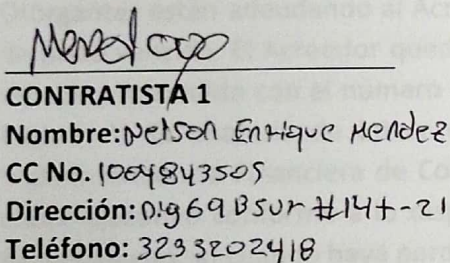 CONTRATISTA 1
Nombre: Nelson Enrique Mendez
CC No. 1004843505
Dirección: Dig 69 B sur #14t-21
Teléfono: 3233202418